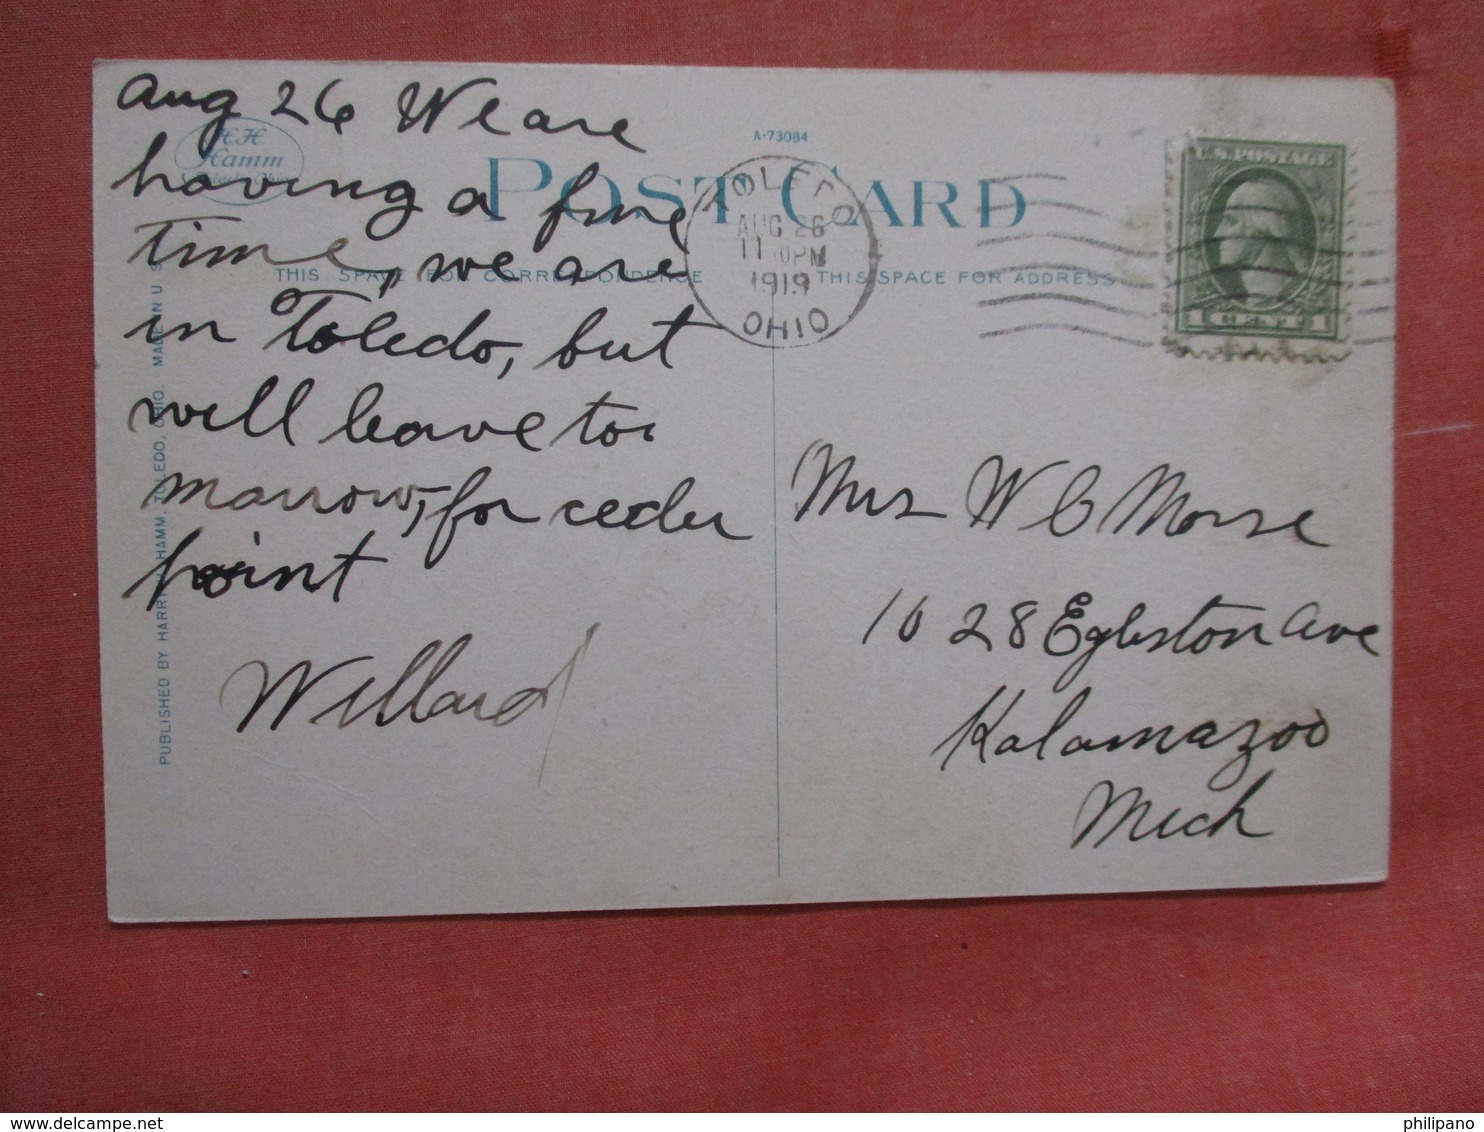 Aug 26 We are
having a fine
time, we are
in Toledo, but
will leave to
marrow, for ceder
point
Willard
H.H.
Hamm
Toledo, Ohio
A-73084
POST CARD
THIS SPACE FOR CORRESPONDENCE
THIS SPACE FOR ADDRESS
TOLEDO
AUG 26
PM
1919
OHIO
U.S. POSTAGE
1 CENT 1
Mrs W C Morse
1028 Egleston Ave
Kalamazoo
Mich
PUBLISHED BY HARRY HAMM, TOLEDO, OHIO. MADE IN U.S.
philipano
delcampe.net